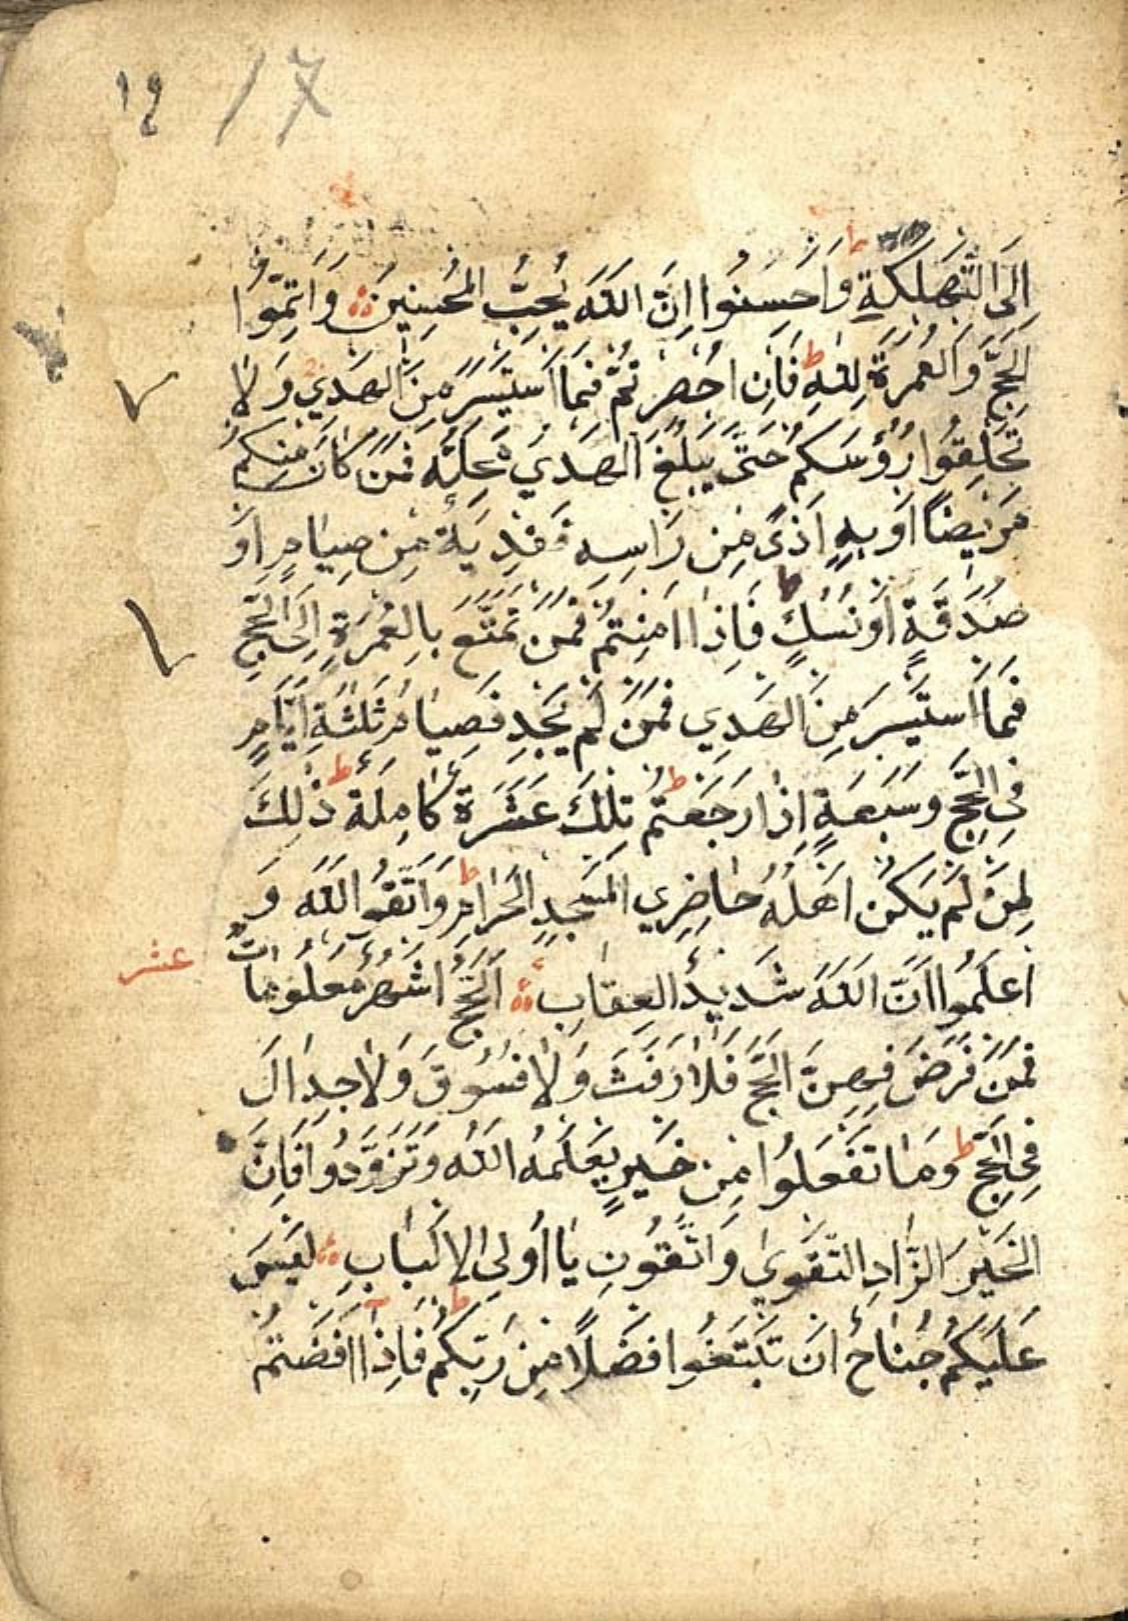 ١٤ 17
اِلَى التَّهْلُكَةِ ط وَاَحْسِنُوا اِنَّ اللّٰهَ يُحِبُّ الْمُحْسِنِينَ وَاَتِمُّوا
الْحَجَّ وَالْعُمْرَةَ لِلّٰهِ ط فَاِنْ اُحْصِرْتُمْ فَمَا اسْتَيْسَرَ مِنَ الْهَدْيِ وَلَا
تَحْلِقُوا رُؤُسَكُمْ حَتّٰى يَبْلُغَ الْهَدْيُ مَحِلَّهُ فَمَنْ كَانَ مِنْكُمْ
مَرِيضًا اَوْ بِهِ اَذًى مِنْ رَاسِهِ فَفِدْيَةٌ مِنْ صِيَامٍ اَوْ
صَدَقَةٍ اَوْ نُسُكٍ ط فَاِذَا اَمِنْتُمْ فَمَنْ تَمَتَّعَ بِالْعُمْرَةِ اِلَى الْحَجِّ
فَمَا اسْتَيْسَرَ مِنَ الْهَدْيِ فَمَنْ لَمْ يَجِدْ فَصِيَامُ ثَلٰثَةِ اَيَّامٍ
فِي الْحَجِّ وَسَبْعَةٍ اِذَا رَجَعْتُمْ ط تِلْكَ عَشَرَةٌ كَامِلَةٌ ط ذٰلِكَ
لِمَنْ لَمْ يَكُنْ اَهْلُهُ حَاضِرِي الْمَسْجِدِ الْحَرَامِ ط وَاتَّقُوا اللّٰهَ وَ
اعْلَمُوا اَنَّ اللّٰهَ شَدِيدُ الْعِقَابِ اَلْحَجُّ اَشْهُرٌ مَعْلُومَاتٌ
عشر
فَمَنْ فَرَضَ فِيهِنَّ الْحَجَّ فَلَا رَفَثَ وَلَا فُسُوقَ وَلَا جِدَالَ
فِي الْحَجِّ ط وَمَا تَفْعَلُوا مِنْ خَيْرٍ يَعْلَمْهُ اللّٰهُ وَتَزَوَّدُوا فَاِنَّ
الخَيْرَ الزَّادِ التَّقْوٰى وَاتَّقُونِ يَا اُولِي الْاَلْبَابِ لَيْسَ
عَلَيْكُمْ جُنَاحٌ اَنْ تَبْتَغُوا فَضْلًا مِنْ رَبِّكُمْ ط فَاِذَا اَفَضْتُمْ